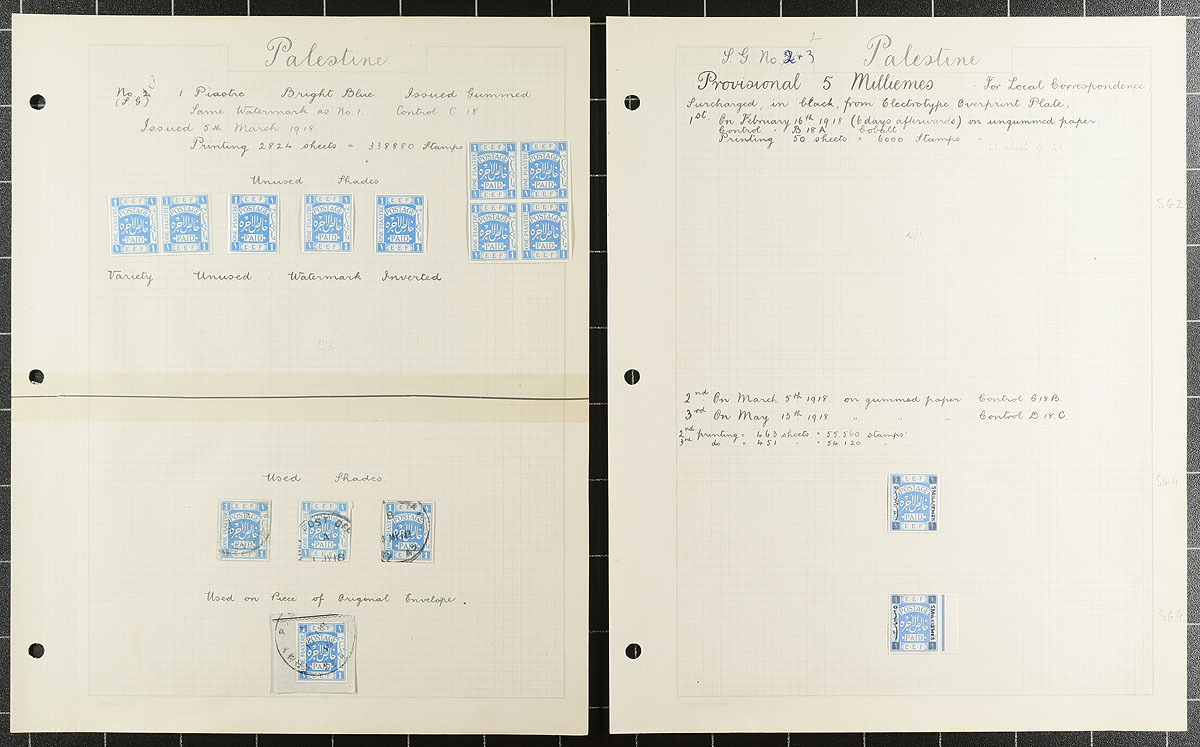 Palestine
No. 3 1 Piastre Bright Blue Issued Gummed
(S G) Same Watermark as No 1. Control C. 18
Issued 5th March 1918.
Printing 2824 sheets = 338880 Stamps
Unused Shades
E.E.F
POSTAGE
PAID
ONE PIASTRE
خالص الاجره
Variety Unused. Watermark Inverted
Used Shades
Used on Piece of Original Envelope.
S. G. No. 2 + 3 Palestine
Provisional 5 Milliemes For Local Correspondence.
Surcharged, in black, from Electrotype Overprint Plate.
1st. On February 16th 1918 (6 days afterwards) on ungummed paper.
Control " B 18 A Cobalt
Printing 50 sheets = 6000 Stamps
SG2
2nd On March 5th 1918 on gummed paper Control C18B.
3rd On May 13th 1918 " " " Control D.18.C.
2nd printing: 463 sheets = 55.560 stamps
3rd do " 451 " = 54.120 "
SG4
E.E.F
POSTAGE
PAID
5 MILLIEMES
SG4
E.E.F
POSTAGE
PAID
5 MILLIEMES